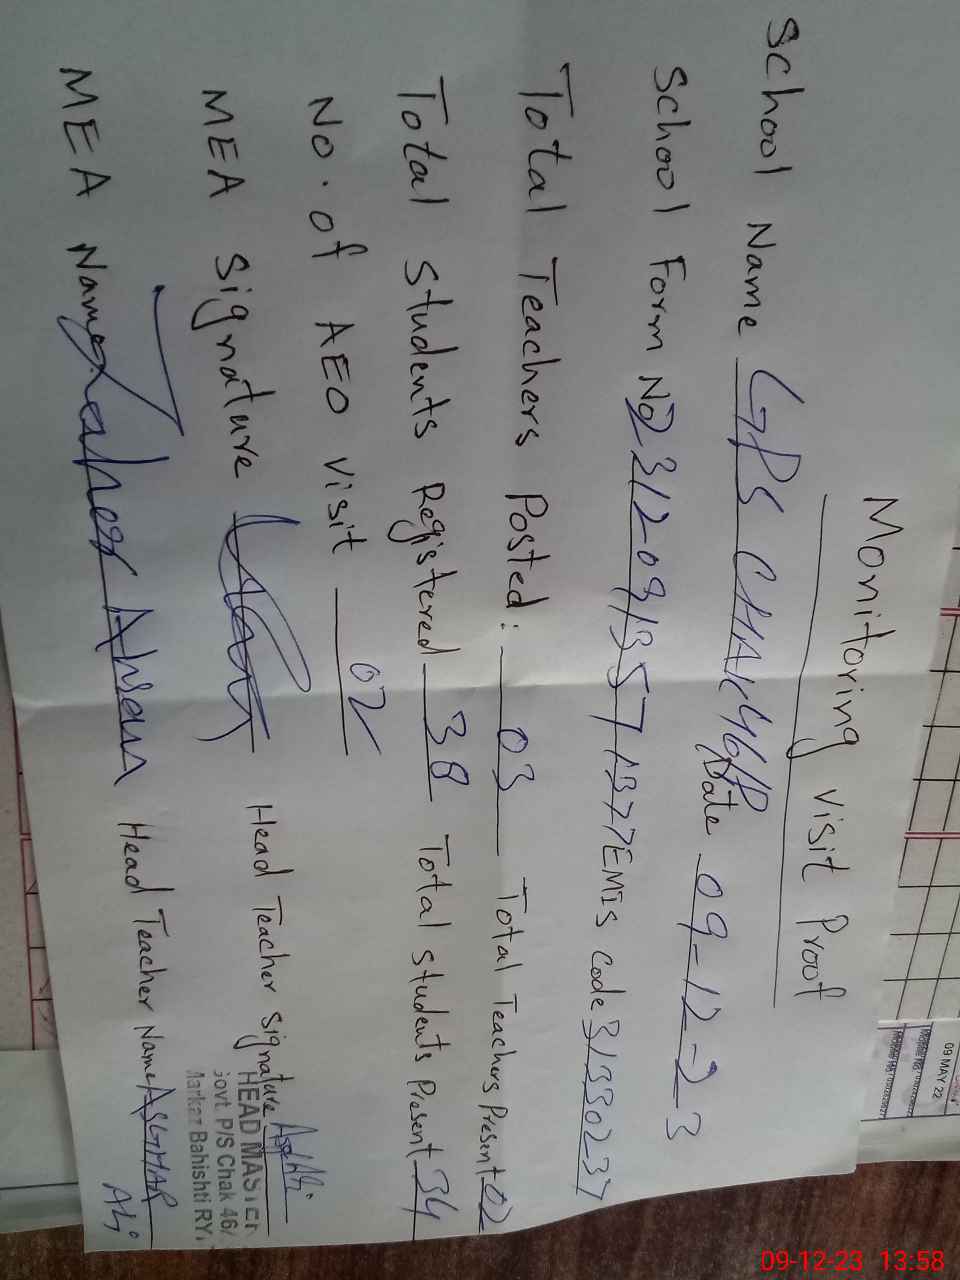 Monitoring visit Proof
School Name GPS CHAK 46/P Date 09-12-23
School Form No 2312091357 1377 EMIS Code 31330237
Total Teachers Posted: 03 Total Teachers Present 02
Total Students Registered 38 Total Students Present 34
No. of AEO visit 02
MEA Signature Head Teacher Signature
HEAD MASTER
Govt. P/S Chak 46/
Markaz Bahishti RY
MEA Name Ahsan Head Teacher Name ASGHAR Ali
09 MAY 22
09-12-23 13:58